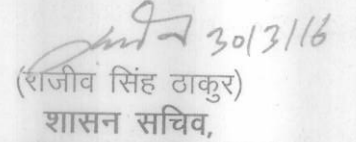 30/3/16
(राजीव सिंह ठाकुर)
शासन सचिव,